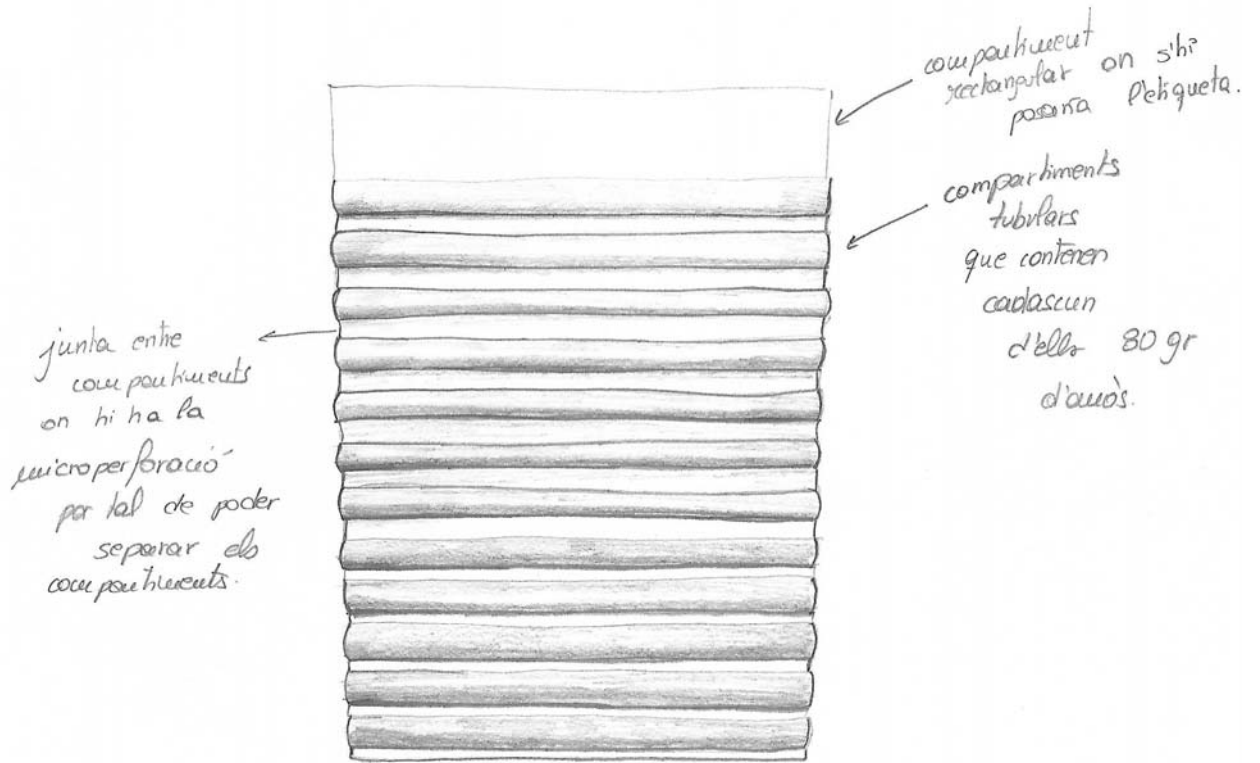 compartiment
rectangular on s'hi
posaria l'etiqueta.
compartiments
tubulars
que contenen
cadascun
d'ells 80 gr
d'arròs.
junta entre
compartiments
on hi ha la
microperforació
per tal de poder
separar els
compartiments.